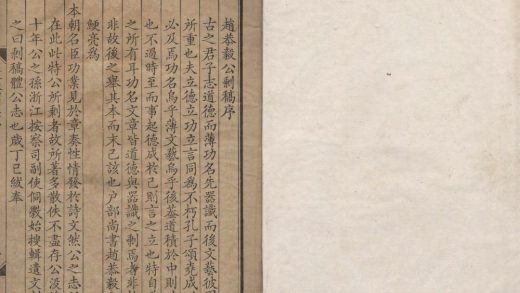 趙恭毅公剩稿序
古之君子志道德而薄功名先器識而後文藝彼
所重也夫立德立功立言同為不朽孔子頌堯成
必及焉功名烏乎薄文藝烏乎後蓋道積於中則
也不遇時至而事起德成於己則言之立也特自
之所有耳功名文章皆道德與器識之剩焉者非
非故後之舉其本而末已該也戶部尚書趙恭毅
鯁亮為
本朝名臣功業見於章奏性情發於詩文然公之志
在此此特公所剩者故所著多散佚不盡存公沒
十年公之孫浙江按察司副使侗斅始搜輯遺文
之曰剩稿體公志也歲丁巳紱奉